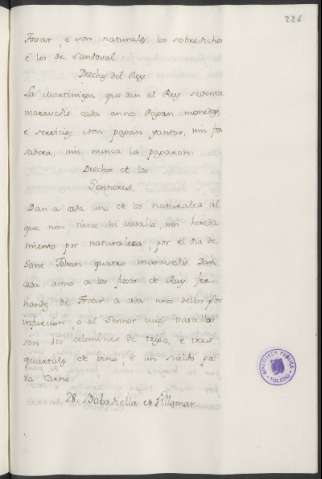 226
Tovar, e son naturales los sobredichos
e los de Sandoval.
Derechos del Rey
La martiniega que dan al Rey sesenta
maravedis cada anno. Pagan monedas,
e servicios. Non pagan yantar, nin fon
sadera, nin nunca la pagaron.
Derechos de los
Sennores.
Dan a cada uno de los naturales al
que non tiene vasallo, nin hereda
miento por naturaleza, por el dia de
Sant quatro maravedis. Dan
cada anno a los fijos de Ruy fer-
nandez de Tovar a cada uno dellos por
infurcion, o al Sennor cuio vasallo
son dos celemines de trigo, e tres
quartales de vino, e un sueldo pa-
ra carne.
28. Bobadiella et Villamar
BIBLIOTECA PUBLICA
TOLEDO